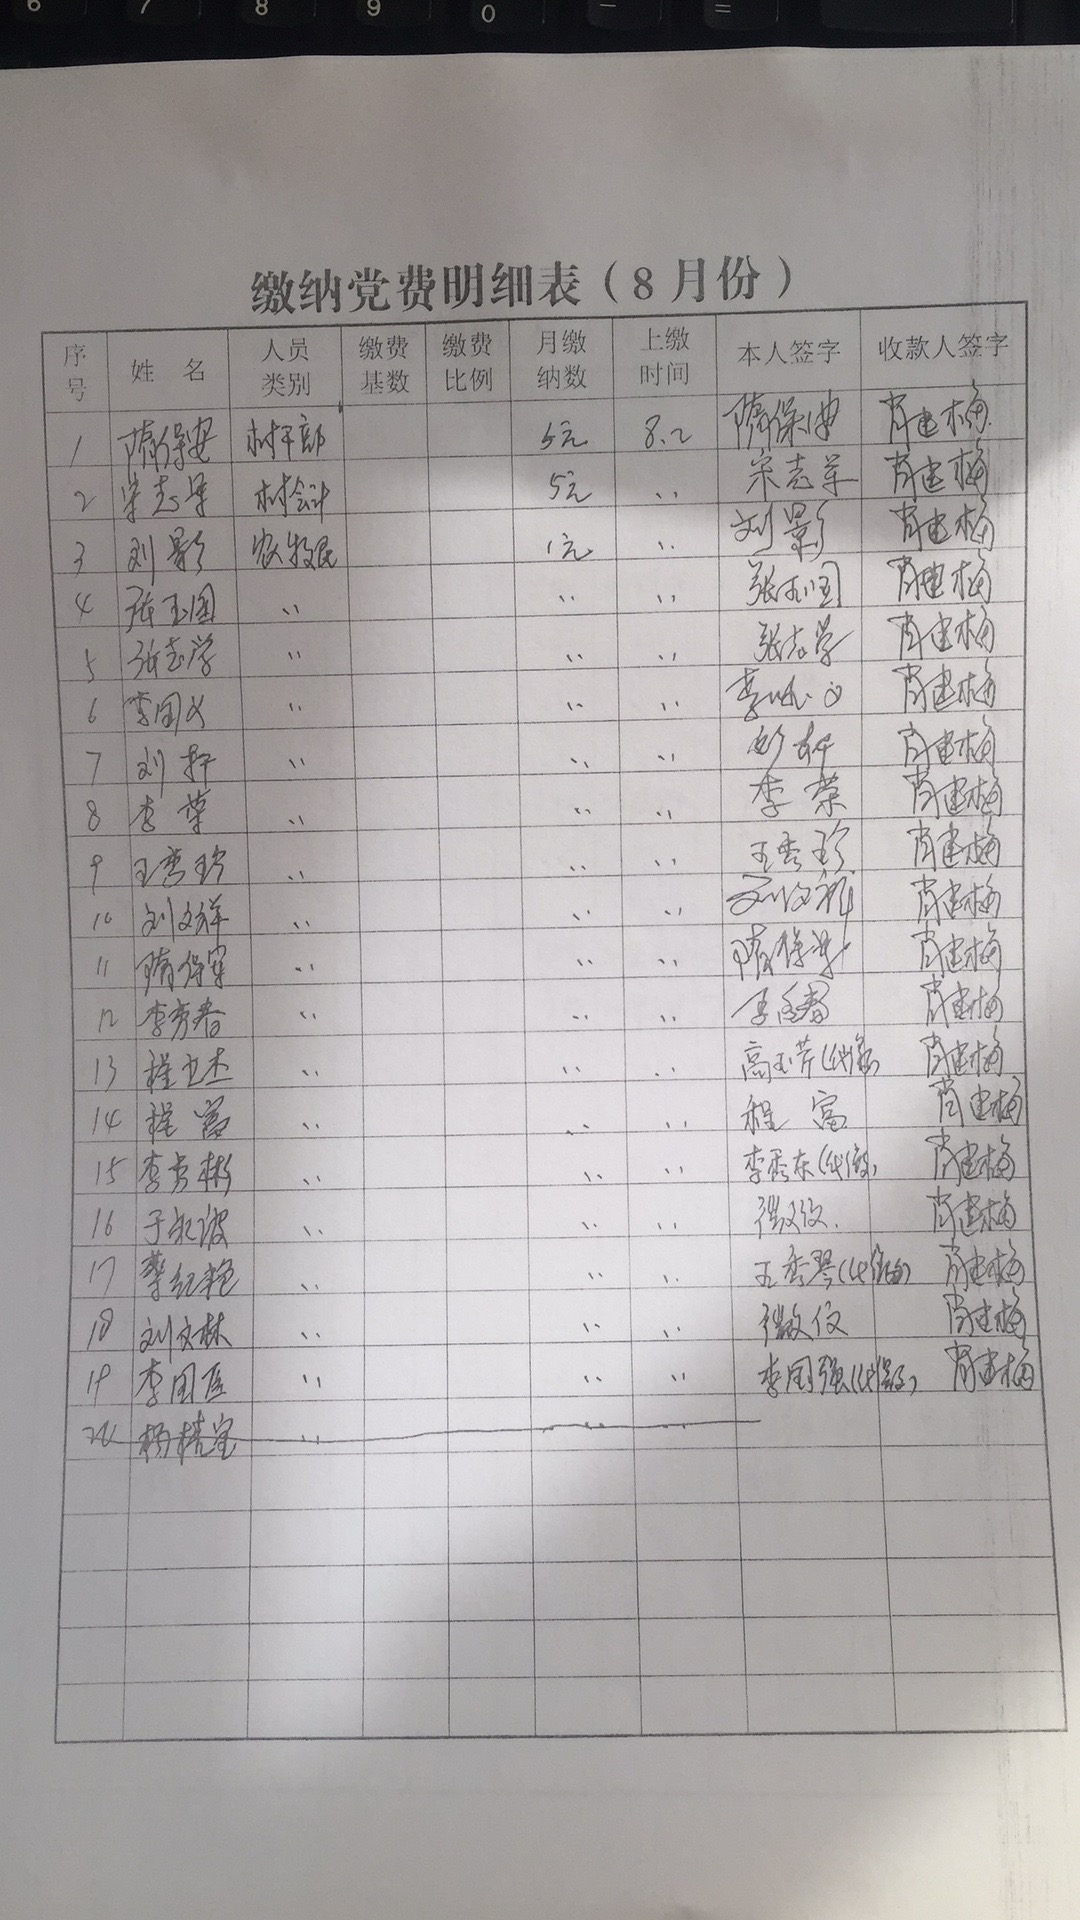 6 7 8 9 0 - =
缴纳党费明细表（8月份）
序号 姓 名 人员类别 缴费基数 缴费比例 月缴纳数 上缴时间 本人签字 收款人签字
1 隋保安 村干部 5元 8.2 隋保安 肖建梅
2 宋志军 村会计 5元 〃 宋志军 肖建梅
3 刘影 农牧民 1元 〃 刘影 肖建梅
4 张玉国 〃 〃 〃 张玉国 肖建梅
5 张志学 〃 〃 〃 张志学 肖建梅
6 李国义 〃 〃 〃 肖建梅
7 刘轩 〃 〃 〃 肖建梅
8 李荣 〃 〃 〃 李荣 肖建梅
9 王秀珍 〃 〃 〃 王秀珍 肖建梅
10 刘文祥 〃 〃 〃 刘文祥 肖建梅
11 隋保军 〃 〃 〃 隋保军 肖建梅
12 李秀春 〃 〃 〃 李秀春 肖建梅
13 程卫杰 〃 〃 〃 高玉芹（代缴） 肖建梅
14 程富 〃 〃 〃 程富 肖建梅
15 李秀彬 〃 〃 〃 李秀东（代缴） 肖建梅
16 于永波 〃 〃 〃 肖建梅
17 〃 〃 〃 王秀琴（代缴） 肖建梅
18 刘文林 〃 〃 〃 肖建梅
19 李国臣 〃 〃 〃 李国强（代缴） 肖建梅
20 〃 〃